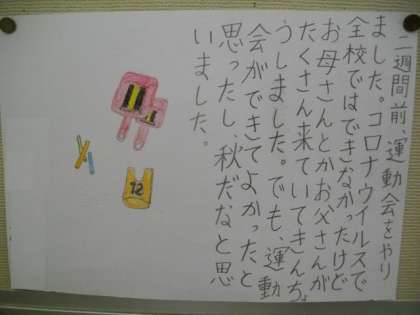 二週間前、運動会をやり
ました。コロナウイルスで
全校ではできなかったけど
お母さんとかお父さんが
たくさん来ていてきんちょ
うしました。でも、運動
会ができてよかったと
思ったし、秋だなと思
いました。
12